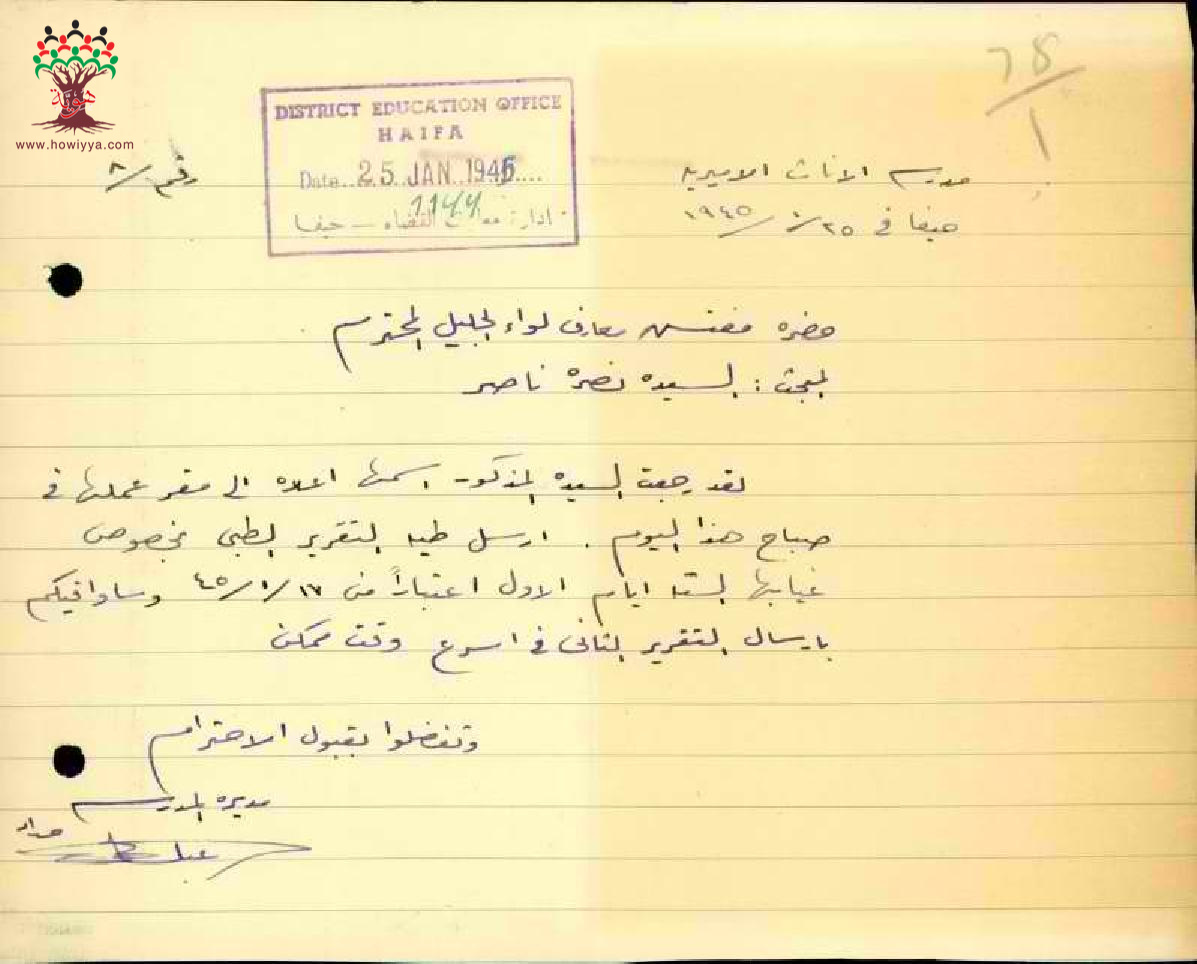 هوية
www.howiyya.com
68/1
DISTRICT EDUCATION OFFICE
HAIFA
Date..25.JAN.1945....
1144
ادارة معارف القضاء — حيفا
رقم /٨
مدرسة الاناث الاميرية
حيفا في ٢٥/١/١٩٤٥
حضرة مفتش معارف لواء الجليل المحترم
المبحث : السيدة نصرة ناصر
لقد رجعت السيدة المذكور اسمها اعلاه الى مقر عملها في
صباح هذا اليوم . ارسل طيه التقرير الطبي بخصوص
غيابها لستة ايام الاول اعتباراً من ١٧/١/٤٥ وساوافيكم
بارسال التقرير الثاني في اسرع وقت ممكن
وتفضلوا بقبول الاحترام
مديرة المدرسة
حداد